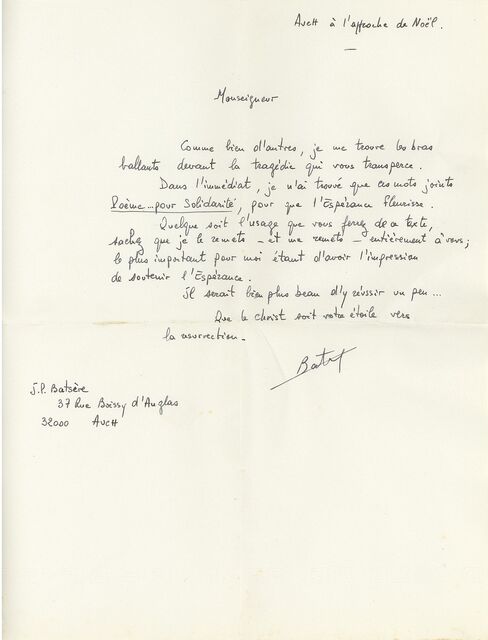 AucH à l'approche de Noël.
Monseigneur
Comme bien d'autres, je me trouve les bras
ballants devant la tragédie qui vous transperce.
Dans l'immédiat, je n'ai trouvé que ces mots joints
Poème... pour Solidarité, pour que l'Espérance fleurisse.
Quelque soit l'usage que vous ferez de ce texte,
sachez que je le remets - et me remets - entièrement à vous;
le plus important pour moi étant d'avoir l'impression
de soutenir l'Espérance.
Il serait bien plus beau d'y réussir un peu...
Que le christ soit votre étoile vers
la résurrection.
J.P. Batsère
37 Rue Boissy d'Anglas
32000 AucH